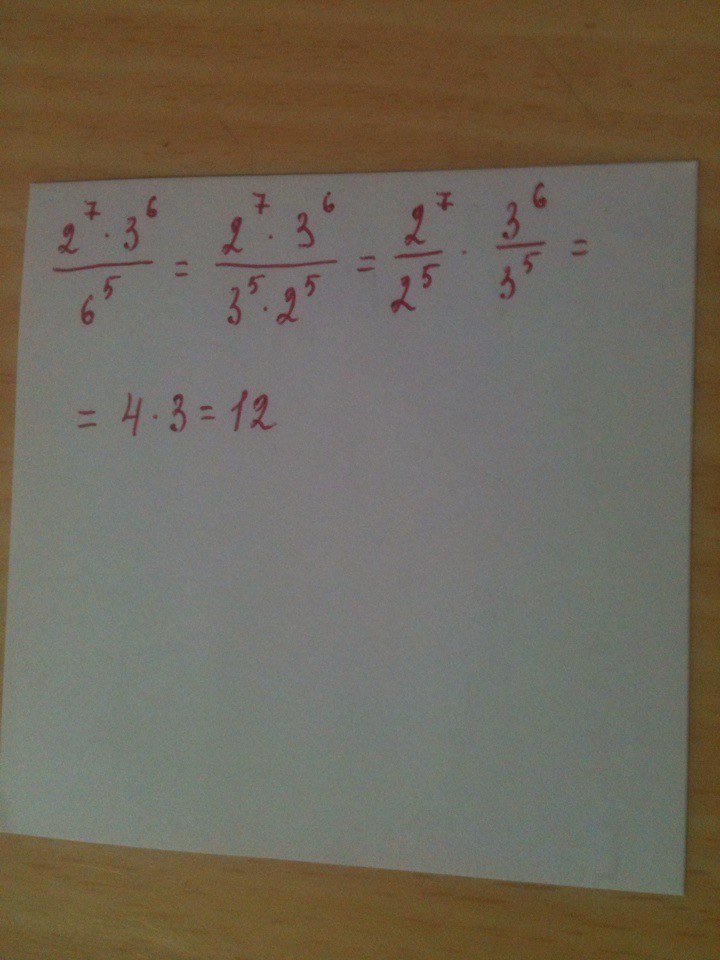 2⁷ · 3⁶ / 6⁵ = 2⁷ · 3⁶ / 3⁵ · 2⁵ = 2⁷ / 2⁵ · 3⁶ / 3⁵ =
= 4 · 3 = 12